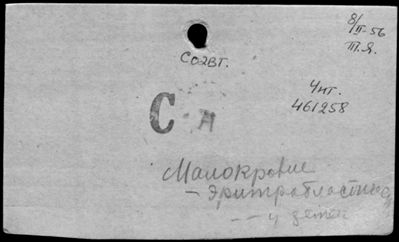 8/II-56
Т.Я.
Соавт.
Чит.
461258
С-А
Малокровие
- эритробластное
-- у детей